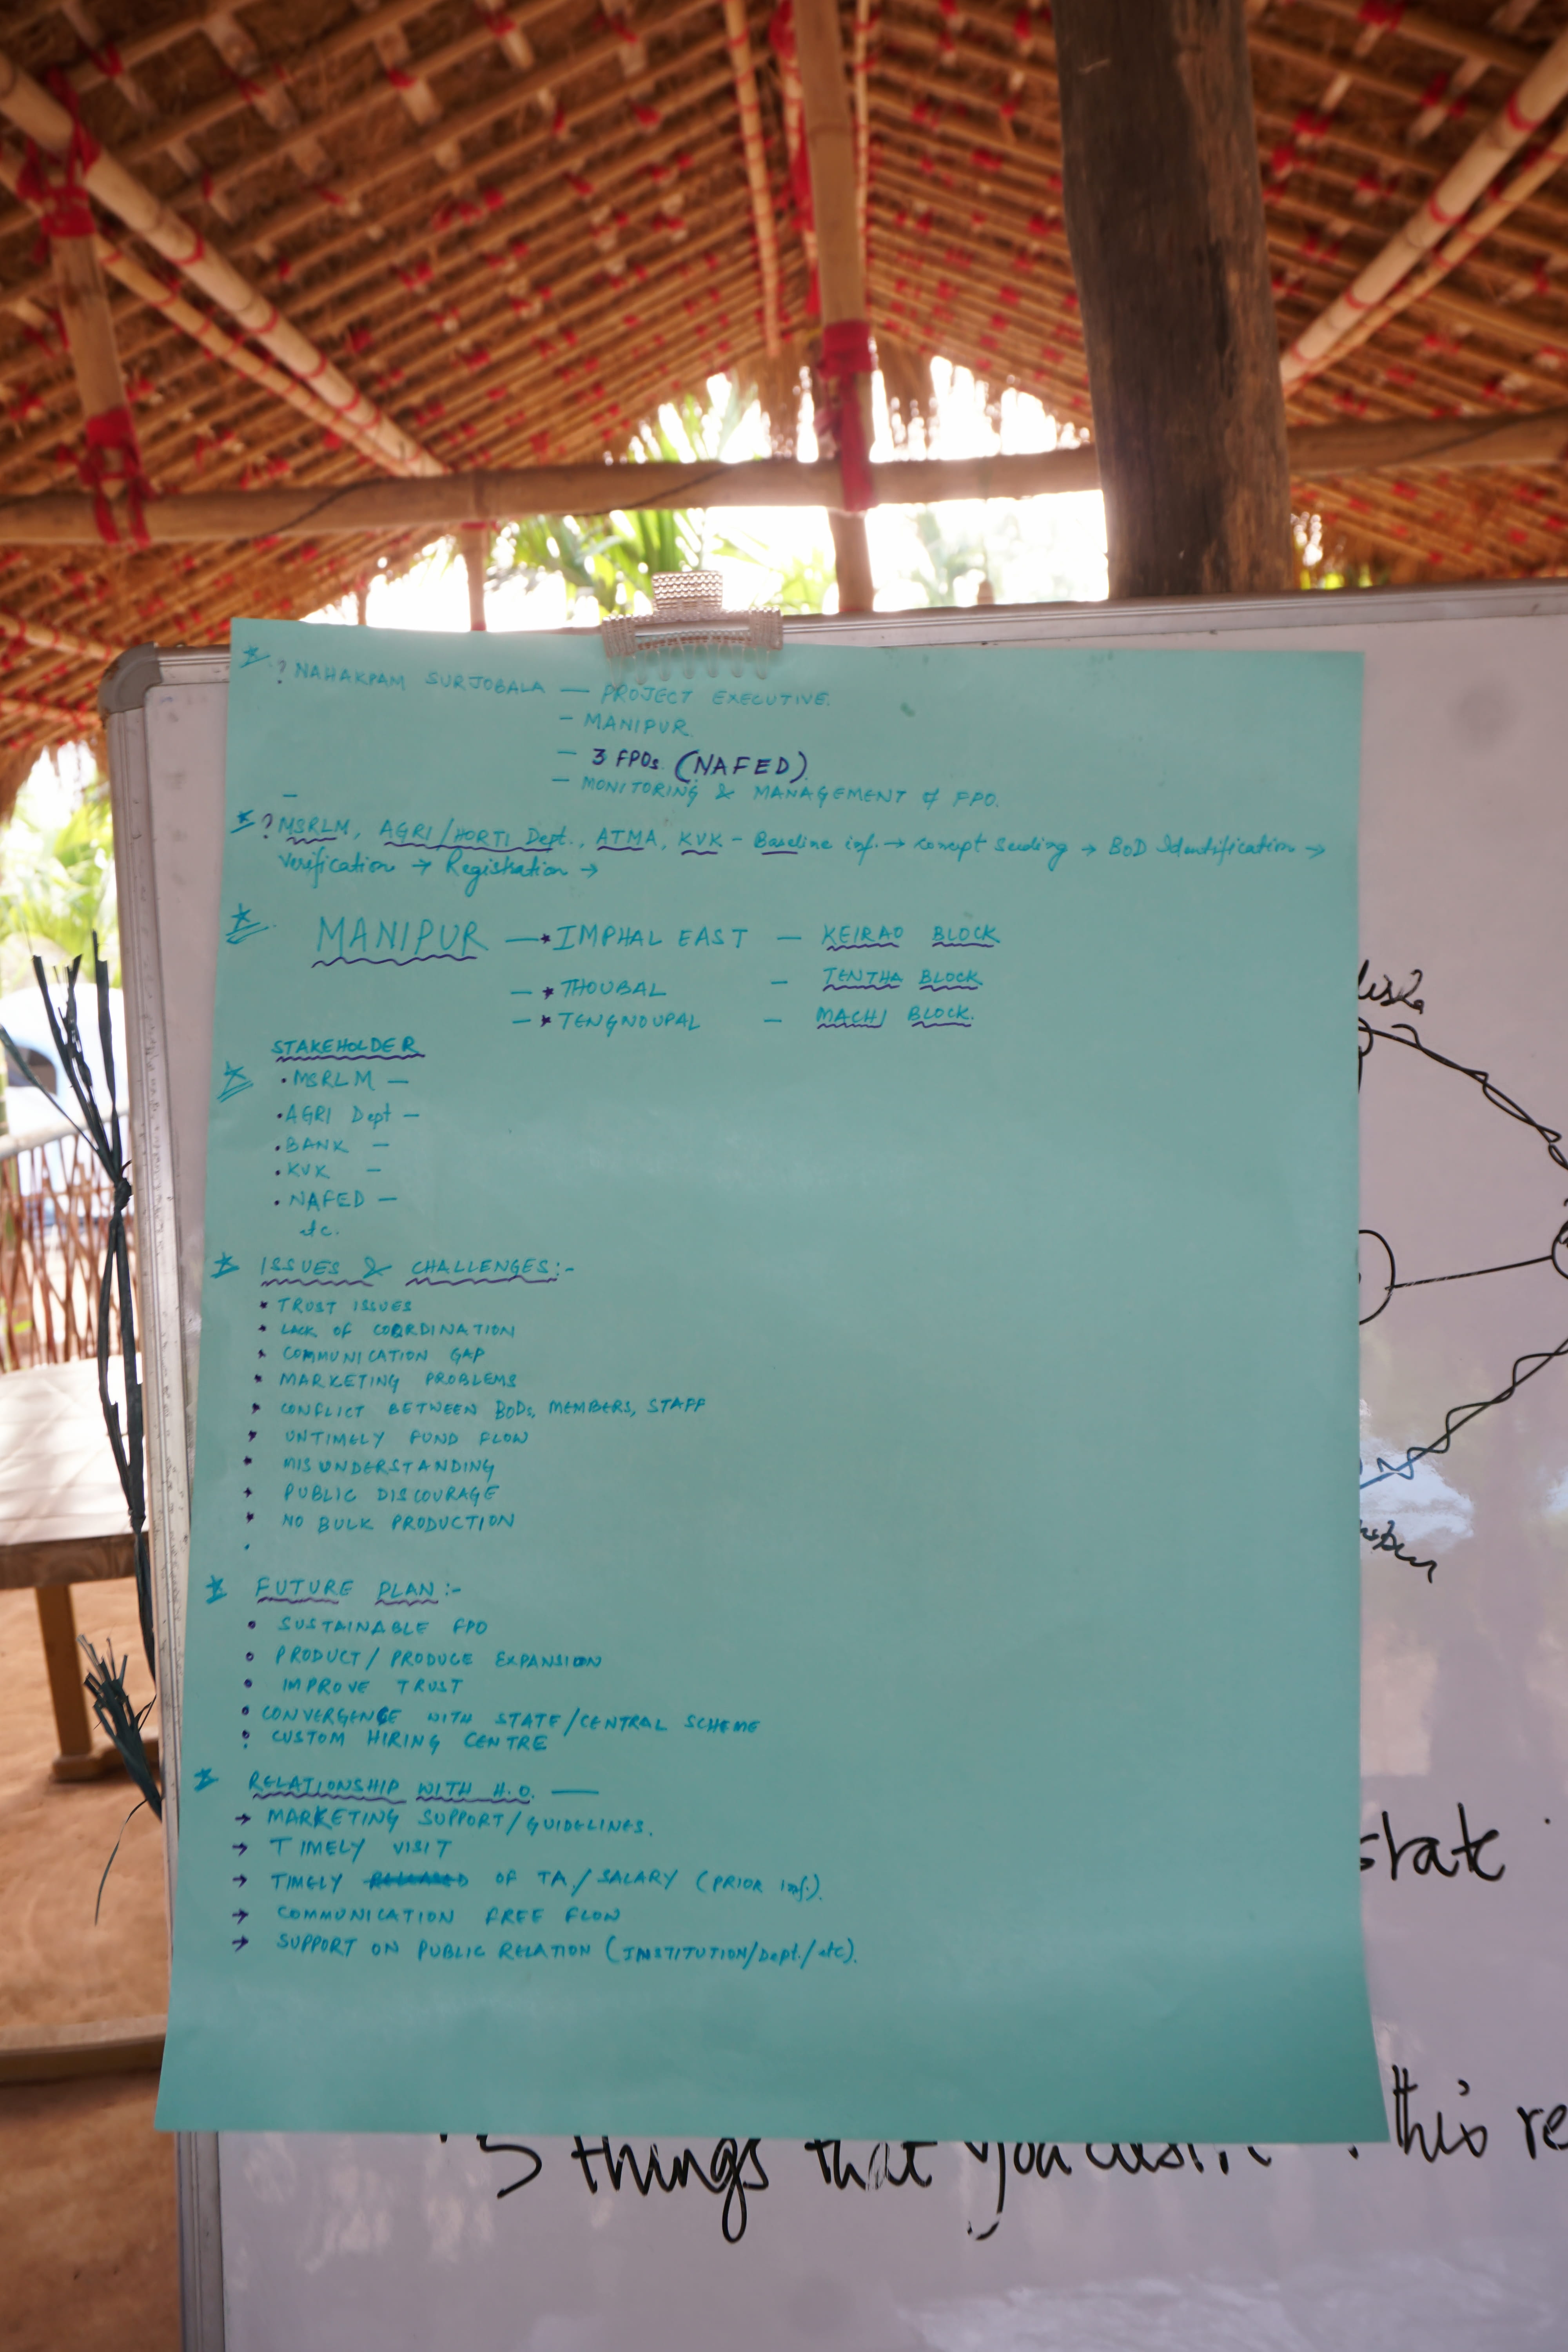 ? NAHAKPAM SURJOBALA — PROJECT EXECUTIVE.
- MANIPUR.
- 3 FPOs. (NAFED)
- MONITORING & MANAGEMENT of FPO.
? MSRLM, AGRI/HORTI Dept., ATMA, KVK - Baseline inf. → concept Seeding → BoD Identification →
Verification → Registration →
MANIPUR — * IMPHAL EAST — KEIRAO BLOCK
— * THOUBAL — TENTHA BLOCK
— * TENGNOUPAL — MACHI BLOCK.
STAKEHOLDER
• MSRLM —
• AGRI Dept —
• BANK —
• KVK —
• NAFED —
etc.
ISSUES & CHALLENGES:-
* TRUST ISSUES
* LACK OF COORDINATION
* COMMUNICATION GAP
* MARKETING PROBLEMS
* CONFLICT BETWEEN BODs, MEMBERS, STAFF
* UNTIMELY FUND FLOW
* MISUNDERSTANDING
* PUBLIC DISCOURAGE
* NO BULK PRODUCTION
FUTURE PLAN:-
• SUSTAINABLE FPO
• PRODUCT/PRODUCE EXPANSION
• IMPROVE TRUST
• CONVERGENCE WITH STATE/CENTRAL SCHEME
• CUSTOM HIRING CENTRE
RELATIONSHIP WITH H.O. —
→ MARKETING SUPPORT/GUIDELINES.
→ TIMELY VISIT
→ TIMELY OF TA./SALARY (PRIOR inf.).
→ COMMUNICATION FREE FLOW
→ SUPPORT ON PUBLIC RELATION (INSTITUTION/Dept./etc).
state
3 things that you this re